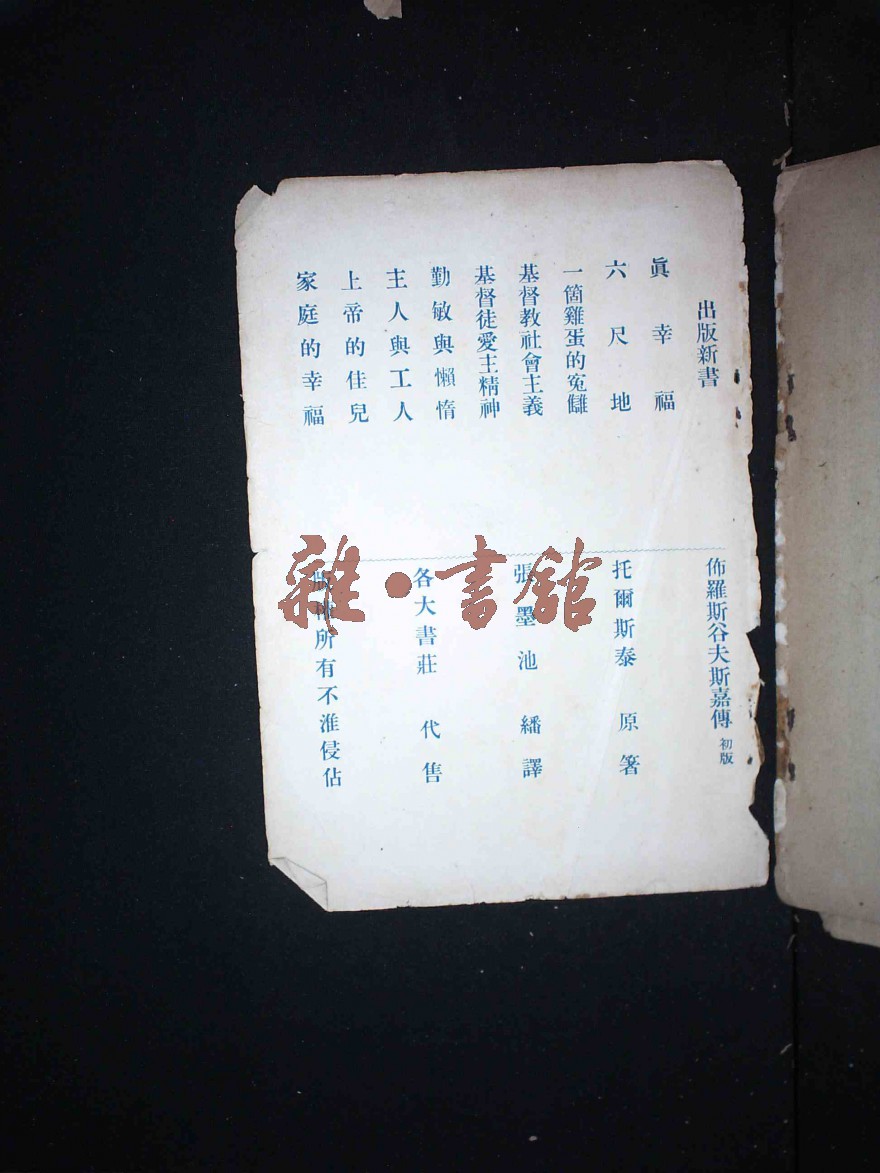 出版新書
眞幸福
六尺地
一箇雞蛋的冤讎
基督教社會主義
基督徒愛主精神
勤敏與懶惰
主人與工人
上帝的佳兒
家庭的幸福
佈羅斯谷夫斯嘉傳 初版
托爾斯泰 原箸
張墨池 繙譯
各大書莊 代售
版權所有不准侵佔
雜·書館